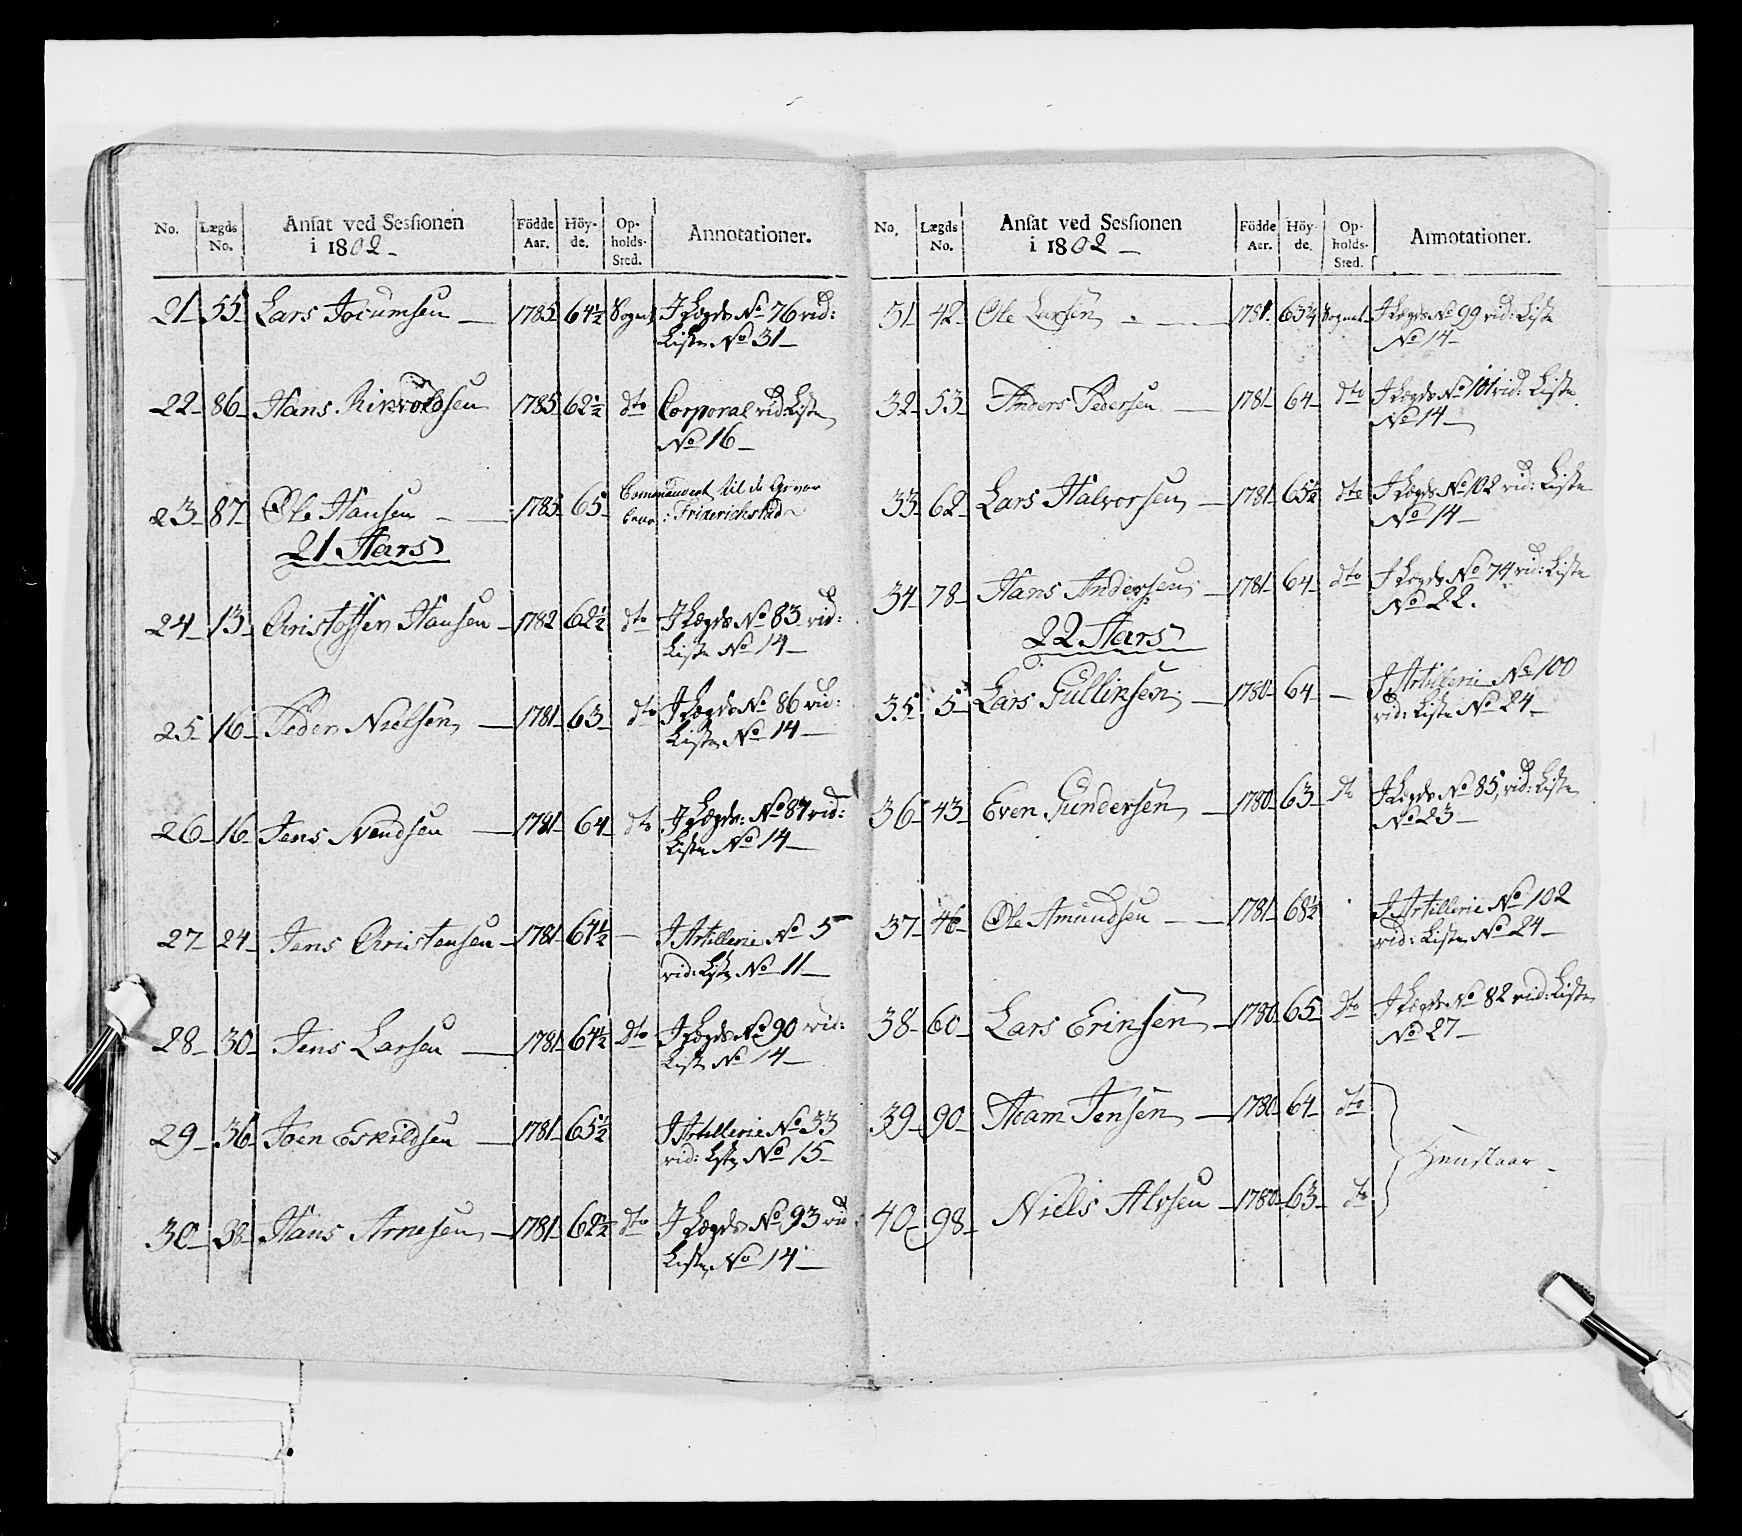 No. Lægds No. Ansat ved Sessionen i 1802 - Födde Aar. Höy-de. Op-holds-Sted. Annotationer.
21 - 55 - Lars Jocumsen - 1785 - 64½ Sognet J Lægds No 76 vid:
Liste No 31 -
22 - 86 - Hans - 1785 - 62½ dto Corporal vid: Liste
No 16 -
23 - 87 - Ole Hansen - 1785 - 65 - til de
: Friderichstad
21 Aars
24 - 13 - Christoffer Hansen - 1782 - 62½ dto J Lægds No 83 vid:
Liste No 14 -
25 - 16 - Peder Nielsen - 1781 - 63 - dto J Lægds No 86 vid:
Liste No 14 -
26 - 16 - Jens Svendsen - 1781 - 64 - dto J Lægds: No 87 vid:
Liste No 14 -
27 - 24 - Jens Christensen - 1781 - 64½ - J Artillerie No 5
vid: Liste No 11 -
28 - 30 - Jens Larsen - 1781 - 64½ dto J Lægds No 90 vid:
Liste No 14 -
29 - 36 - Joen Eskildsen - 1781 - 65½ J Artillerie No 33
vid: Liste No 15 -
30 - 38 - Hans Arnesen - 1781 - 62½ dto J Lægds No 93 vid
Liste No 14 -
No. Lægds No. Ansat ved Sessionen i 1802 - Födde Aar. Höy-de. Op-holds-Sted. Annotationer.
31 - 42 - Ole Larsen - 1781 - 65¼ Sognet J Lægds No 99 vid: Liste
No 14 -
32 - 53 - Anders Pedersen - 1781 - 64 - dto J Lægds No 101 vid: Liste
No 14 -
33 - 62 - Lars Halvorsen - 1781 - 65½ dto J Lægds No 102 vid: Liste
No 14 -
34 - 78 - Hans Andersen - 1781 - 64 - dto J Lægds No 74 vid: Liste
No 22.
22 Aars
35 - 5 - Lars Gulliksen - 1780 - 64 - - J Artillerie No 100
vid: Liste No 24 -
36 - 43 - Even Gundersen - 1780 - 63 - dto J Lægds No 85, vid: Liste
No 23 -
37 - 46 - Ole Amundsen - 1781 - 68½ J Artillerie No 102
vid: Liste No 24 -
38 - 60 - Lars Eriksen - 1780 - 65 - dto J Lægds No 82 vid: Liste
No 27 -
39 - 90 - Adam Jensen - 1780 - 64 - dto
Henstaar -
40 - 98 - Niels Alvsen - 1780 - 63 - dto